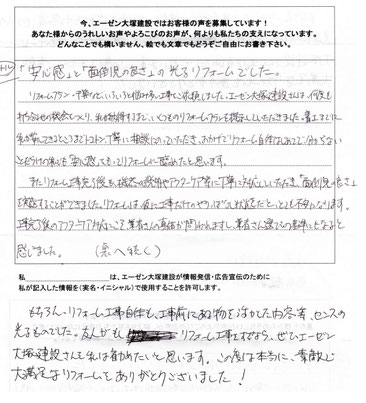 今、エーゼン大塚建設ではお客様の声を募集しています！
あなた様からのうれしいお声やよろこびのお声が、何よりも私たちの支えになっています。
どんなことでも構いません、絵でも文章でもどうぞご自由にお書き下さい。
「安心感」と「面倒見の良さ」の光るリフォームでした。
リフォームプラン・予算など、いろいろと悩み多い工事でお願いしました。エーゼン大塚建設さんは、何度も
打ち合わせの機会をつくり、私が納得するまで、いくつものリフォームプランを提案していただきました。着工までに
私が安心できるところまでトコトン丁寧に相談にのっていただき、おかげでリフォーム自体はじめてで分からない
ことだらけの私にも安心感をもってリフォームに臨めたと思います。
またリフォーム工事完了後も、機器の説明やアフターケア等に丁寧に対応していただき、「面倒見の良さ」
を実感することができました。リフォームは、仮に工事だけのやりっぱなし状態だといっとも不安になります。
工事完了後のアフターケア対応にこそ業者さんの真価が問われますし、業者さん選びの基準にもなると
感じました。 (裏へ続く)
私＿＿＿＿＿＿＿は、エーゼン大塚建設が情報発信・広告宣伝のために
私が記入した情報を（実名・イニシャル）で使用することを許可します。
もちろん、リフォーム工事自体も、工事前にあった物を活かした内容等、センスの
光るものでした。友人がもし リフォーム工事をするなら、ぜひエーゼン
大塚建設さんを私は勧めたいと思います。この度は本当に、素敵で
大満足なリフォームをありがとうございました！